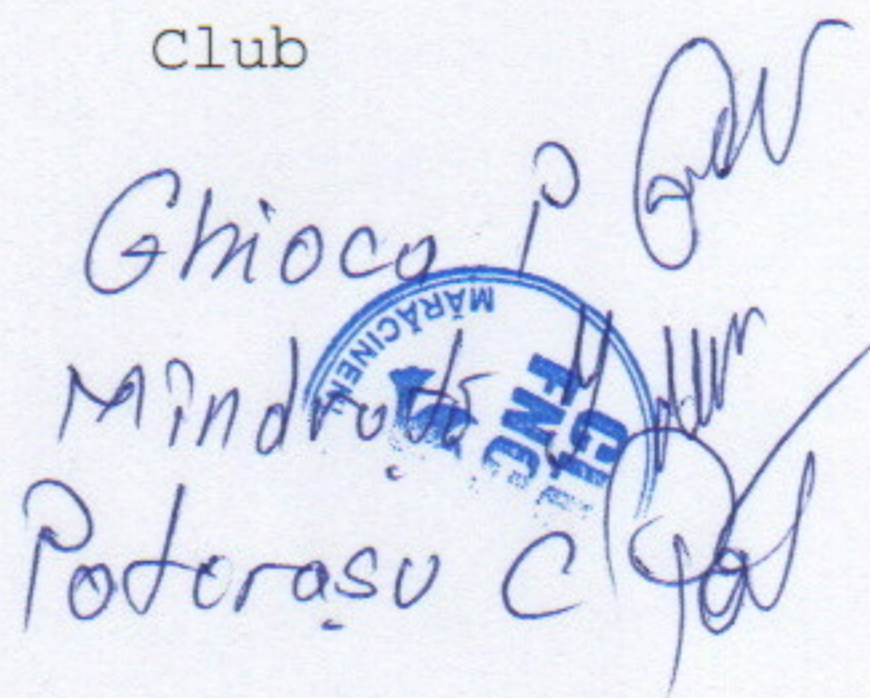 Club
Ghioca P
Mîndruță
Potorașu C
MĂRĂCINENI
FNC